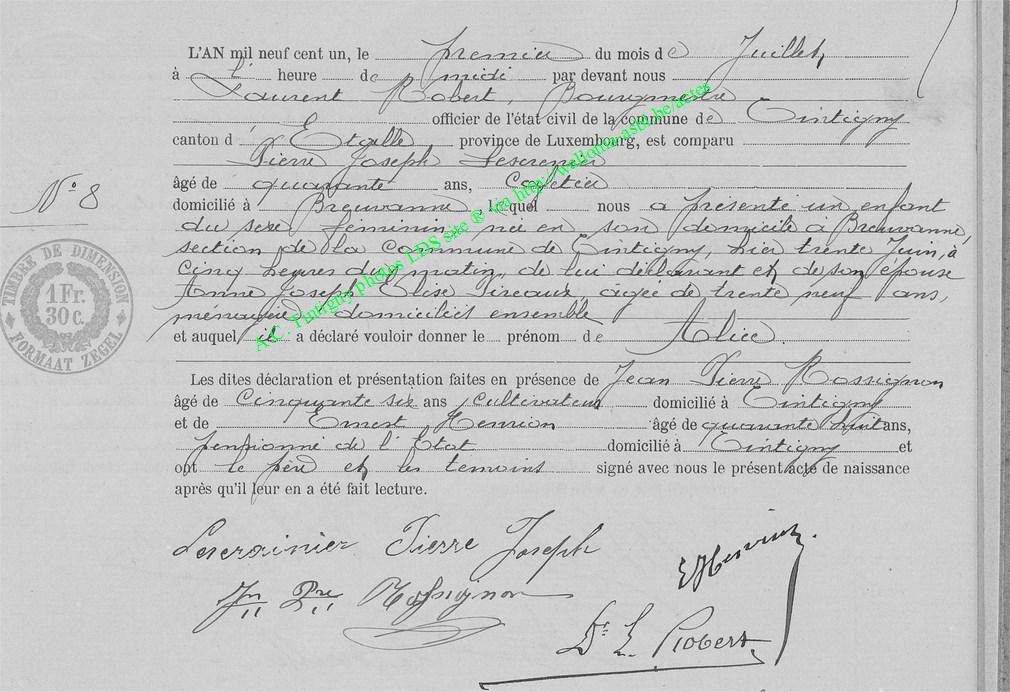 L'AN mil neuf cent un, le premier du mois de Juillet
à heure de midi par devant nous
Laurent Robert, Bourgmestre
officier de l'état civil de la commune de Tintigny
canton d'Etalle province de Luxembourg, est comparu
Pierre Joseph Lescrenier
âgé de quarante ans, cafetier
domicilié à Breuvanne, lequel nous a présenté un enfant
N° 8
du sexe féminin, née en son domicile à Breuvanne,
section de la commune de Tintigny, hier trente Juin, à
cinq heures du matin, de lui déclarant et de son épouse
Anne Joseph Elise Pireaux, agée de trente neuf ans,
ménagère, domiciliés ensemble
et auquel il a déclaré vouloir donner le prénom de Alice.
TIMBRE DE DIMENSION
1 Fr.
30 c.
FORMAAT ZEGEL
Les dites déclaration et présentation faites en présence de Jean Pierre Rossignon
âgé de cinquante six ans cultivateur domicilié à Tintigny
et de Ernest Henrion âgé de quarante huit ans,
pensionné de l'Etat domicilié à Tintigny et
ont le père et les témoins signé avec nous le présent acte de naissance
après qu'il leur en a été fait lecture.
Lescrainier Pierre Joseph
E Henrion
Jn Pre Rossignon
Dr L. Robert
A.C. Tintigny photos LDS site ® via http://wallonica